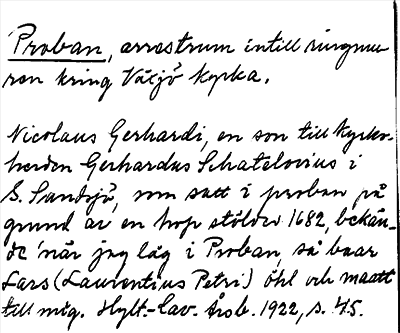 Proban, arrestrum intill ringmu-
ren kring Växjö kyrka.
Nicolaus Gerhardi, en son till kyrko-
herden Gerhardus Schatelovius i
S. Sandsjö, som satt i proban på
grund av en hop stölder 1682, bekän-
de 'när jag låg i Proban, så baar
Lars (Laurentius Petri) öhl och maatt
till mig. Hylt.-Cav. Årsb. 1922, s. 45.